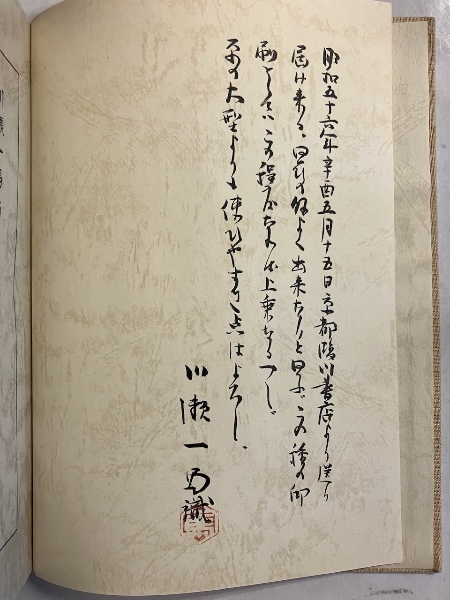 昭和五十六年辛酉五月十五日京都臨川書店より送り
届け来る、思ひの外よく出来たりと思ふ、この種の印
刷としてハ、この程度なれば上乗なるべし、
原の大型よりも使ひやすき点はよろし、
川瀬一馬識